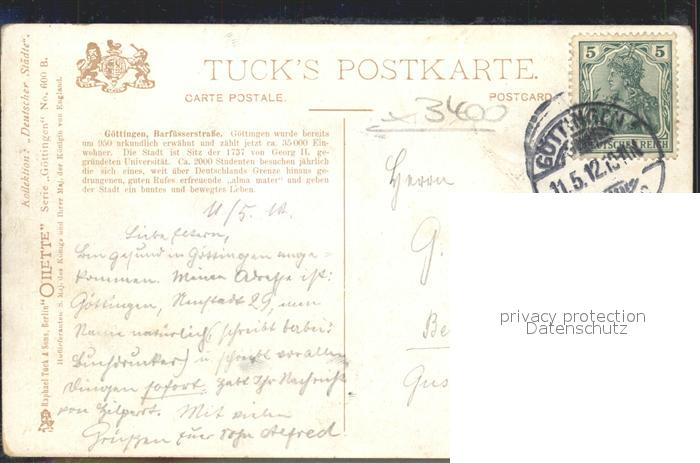 TUCK'S POSTKARTE.
CARTE POSTALE.
POSTCARD
3400
5 5
DEUTSCHES REICH
GÖTTINGEN
11.5.12.
Göttingen, Barfüsserstraße. Göttingen wurde bereits
um 950 urkundlich erwähnt und zählt jetzt ca. 35000 Ein-
wohner. Die Stadt ist Sitz der 1737 von Georg II. ge-
gründeten Universität. Ca. 2000 Studenten besuchen jährlich
die sich eines, weit über Deutschlands Grenze hinaus ge-
drungenen, guten Rufes erfreuende „alma mater" und geben
der Stadt ein buntes und bewegtes Leben.
11/5. 12.
Liebe Eltern,
Bin gesund in Göttingen ange-
kommen. Meine Adresse ist:
Göttingen, Neustadt 29, mein
Name natürlich (schreibt dabei:
Buchdrucker) u. schreibt vor allen
Dingen sofort. Habt Ihr Nachricht
von Hilpert. Mit vielen
Grüßen Euer Sohn Alfred.
Herrn
G.
Be
Gus
Kollektion: „Deutscher Städte".
Serie „Göttingen" No. 600 B.
Raphael Tuck & Sons, Berlin "OILETTE"
Hoflieferanten S. Maj. des Königs und Ihrer Maj. der Königin von England.
privacy protection
Datenschutz